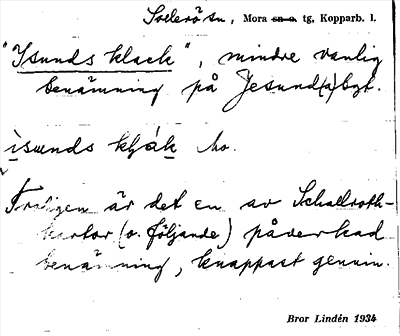 Sollerö sn, Mora sn o. tg, Kopparb. l.
"Isunds klack", mindre vanlig
benämning på Jesund(a)bgt.
isunds kljákk Mo.
Troligen är det en av Schallroth-
kartor (o. följande) påverkad
benämning, knappast genuin.
Bror Lindén 1934